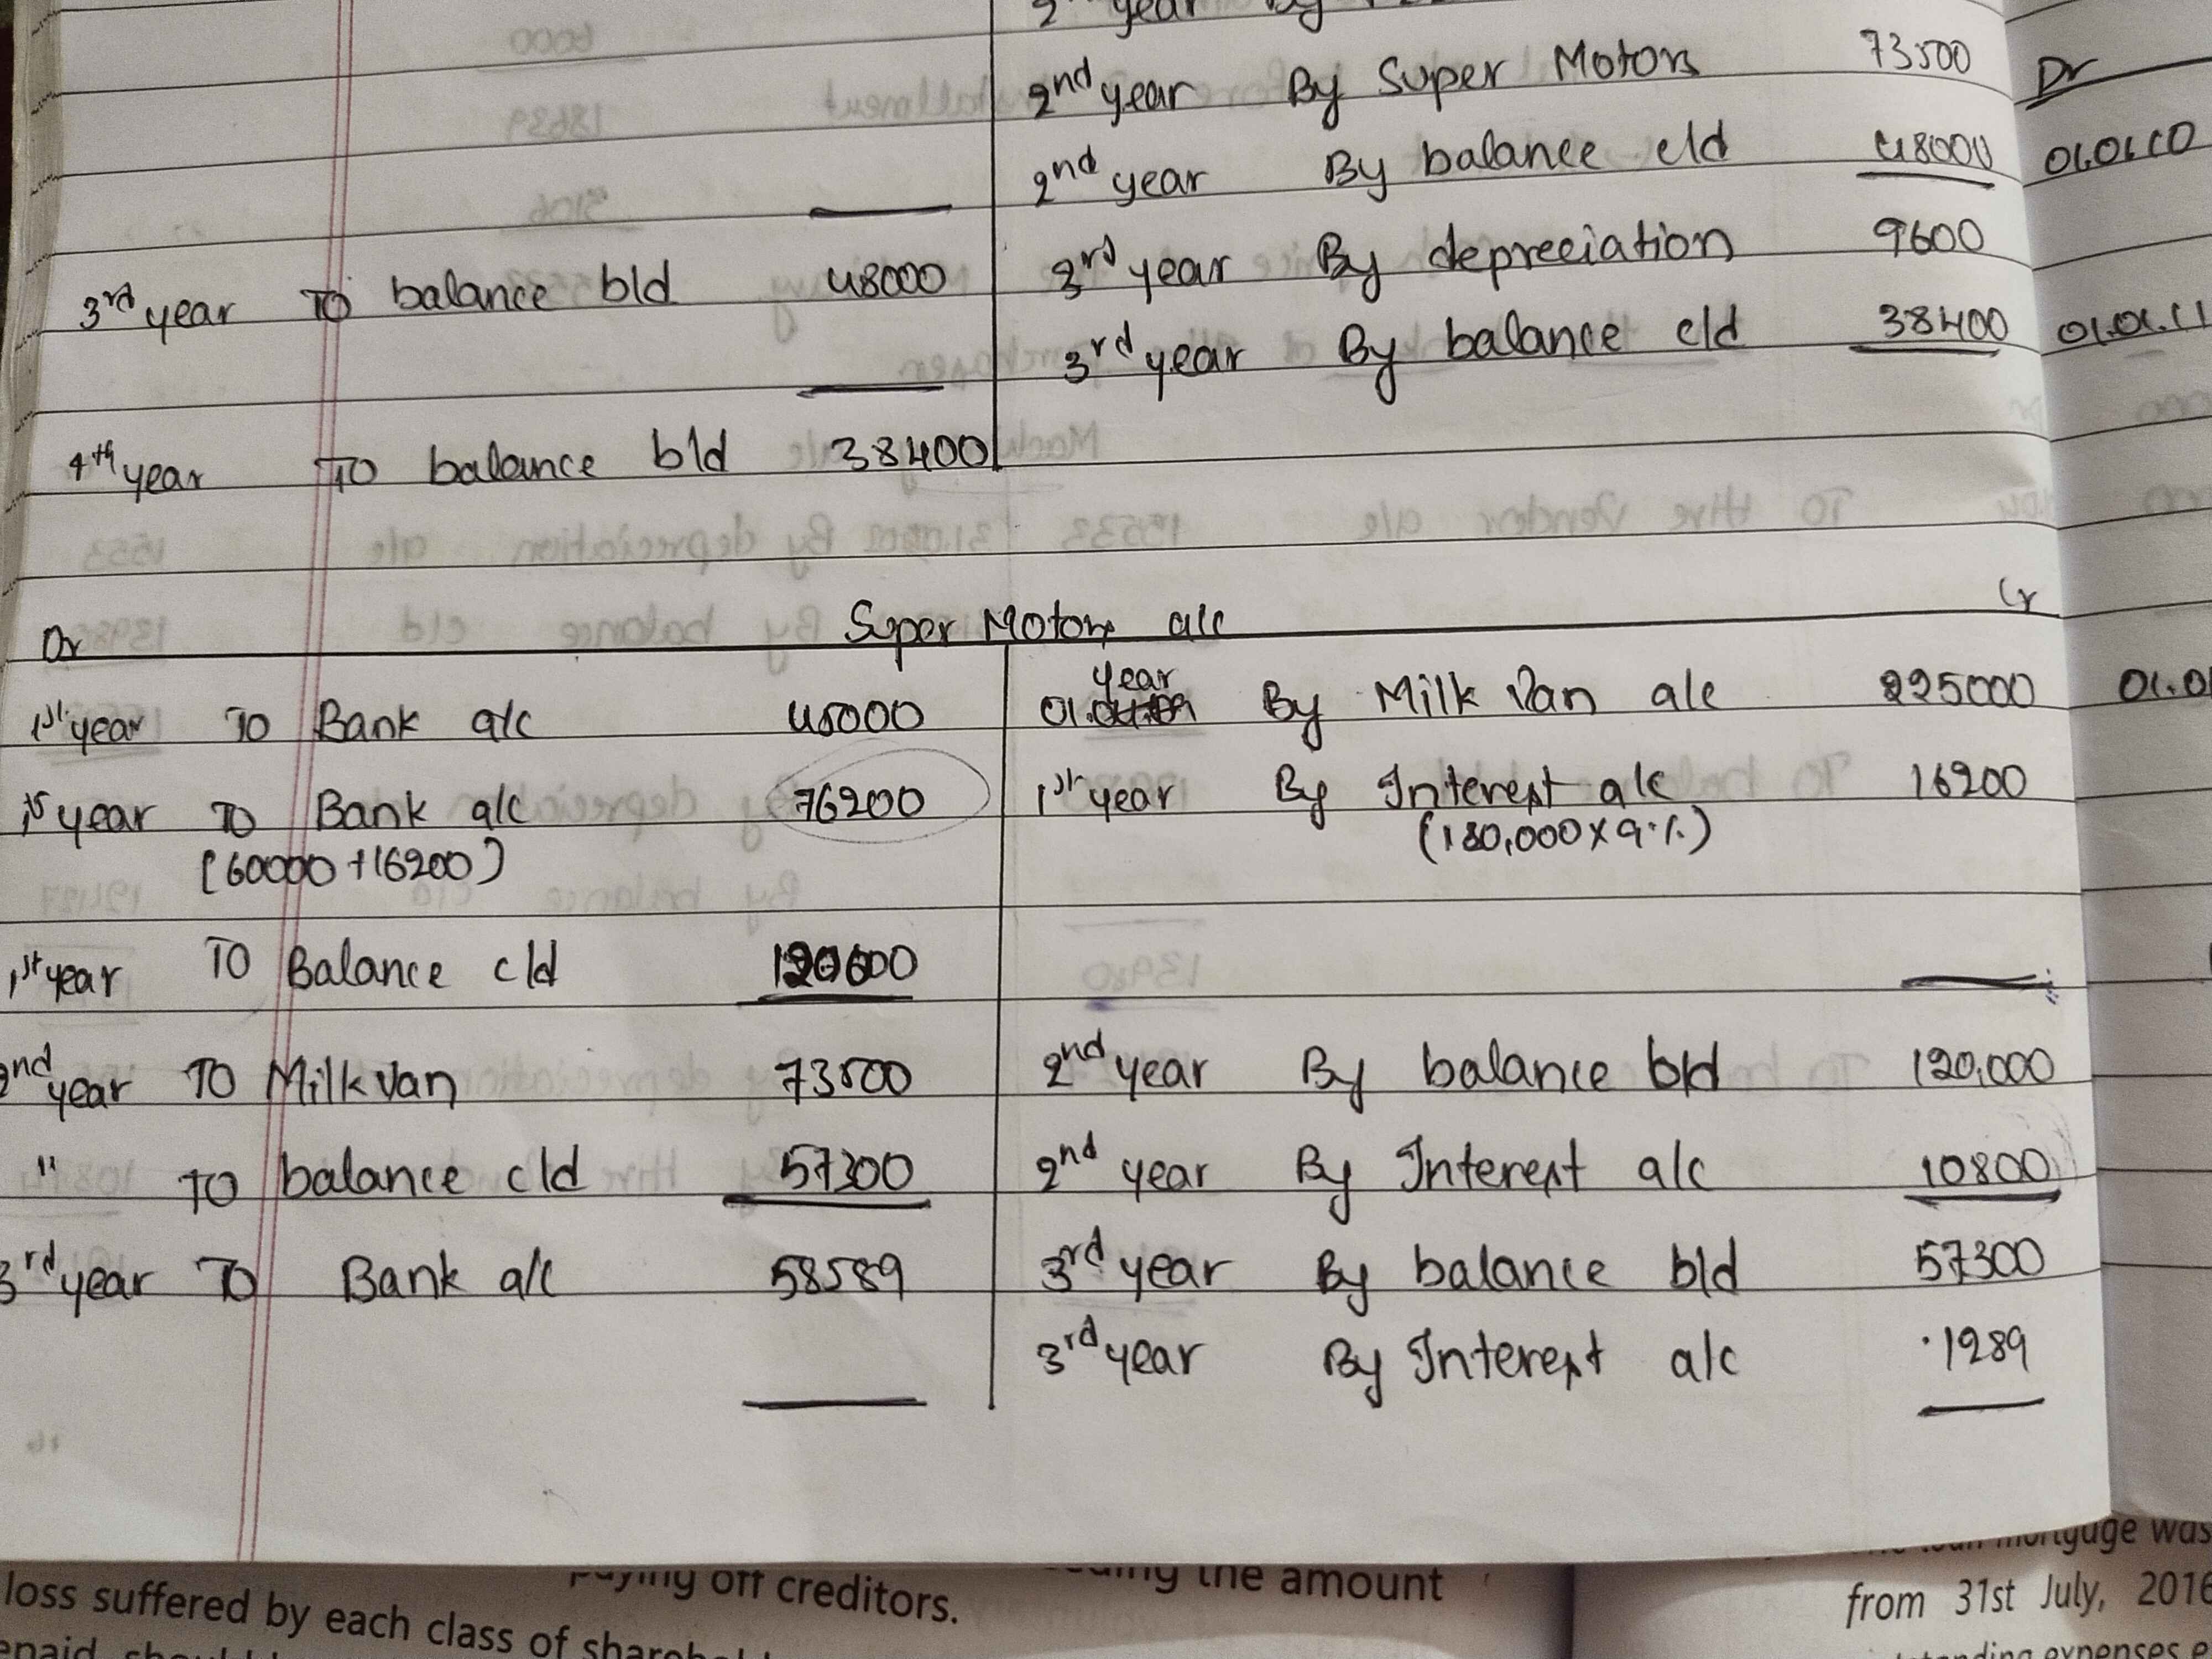 2nd year By
2nd year By Super Motors 73500
Dr
2nd year By balance c/d 48000
01.01.10
3rd year By depreciation 9600
3rd year To balance b/d 48000
3rd year By balance c/d 38400
01.01.11
4th year To balance b/d 38400
Dr Super Motors a/c Cr
1st year To Bank a/c 45000
year
01. By Milk Van a/c 225000
01.01
1st year To Bank a/c 76200
[60000 + 16200)
1st year By Interest a/c 16200
(180,000 x 9%)
1st year To Balance c/d 120000
2nd year To Milk van 73500
2nd year By balance b/d 120,000
" To balance c/d 57300
2nd year By Interest a/c 10800
3rd year To Bank a/c 58589
3rd year By balance b/d 57300
3rd year By Interest a/c 1289
loss suffered by each class of
paying off creditors.
the amount
mortgage was
from 31st July, 2016
expenses